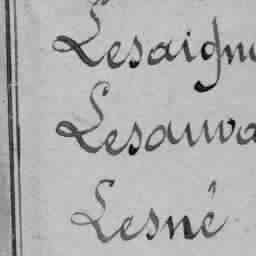 Lesaign
Lesauva
Lesné